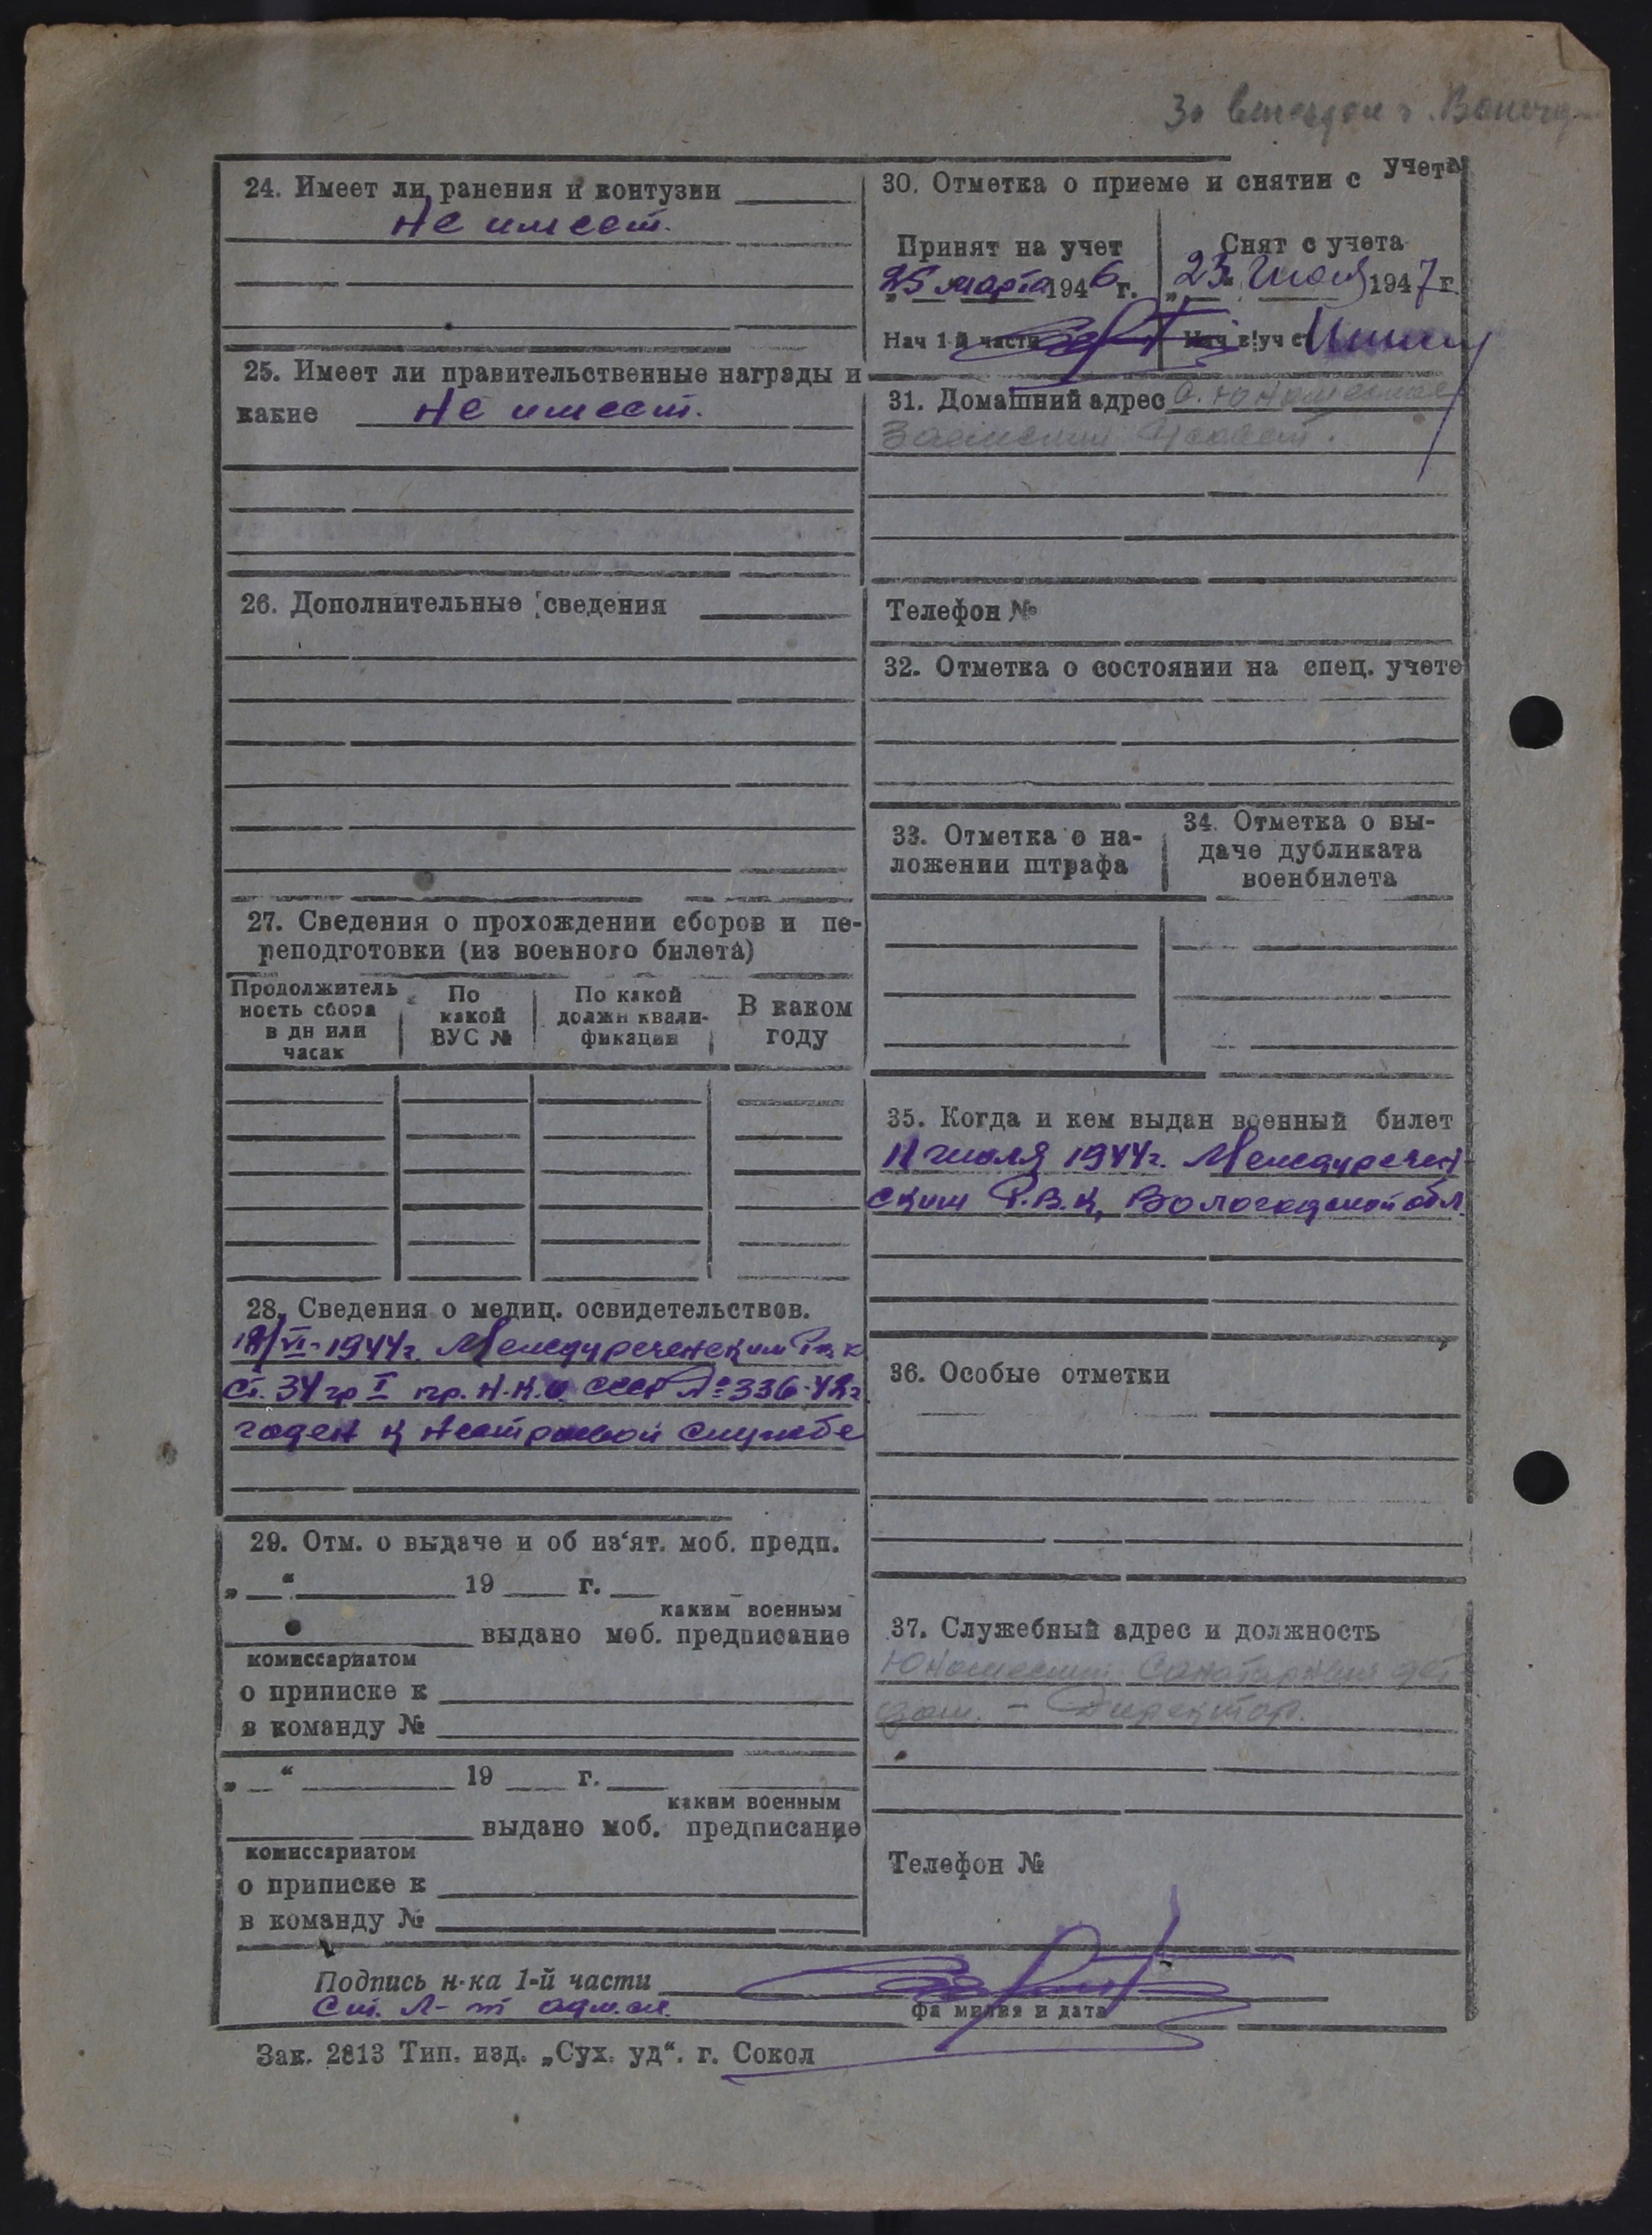 За выездом г. Вологд
24. Имеет ли ранения и контузии
Не имеет.
25. Имеет ли правительственные награды и
какие Не имеет.
26. Дополнительные сведения
27. Сведения о прохождении сборов и пе-
реподготовки (из военного билета)
Продолжитель
ность сбора
в дн или
часах
По
какой
ВУС №
По какой
должн квали-
фикации
В каком
году
28. Сведения о медиц. освидетельствов.
18/VI-1944г. Междуреченским
ст. 34 гр I пр. Н.К.О. СССР № 336-42г
годен к нестроевой службе
29. Отм. о выдаче и об из‘ят. моб. предп.
„ “ 19 г.
каким военным
выдано моб. предписание
комиссариатом
о приписке к
в команду №
„ “ 19 г.
каким военным
выдано моб. предписание
комиссариатом
о приписке к
в команду №
30. Отметка о приеме и снятии с учета
Принят на учет
„25 марта 1946 г.
Нач 1 й части
Снят с учета
„23“ Июля 1947 г
Нач в/уч с
31. Домашний адрес
Телефон №
32. Отметка о состоянии на спец. учете
33. Отметка о на-
ложении штрафа
34. Отметка о вы-
даче дубликата
военбилета
35. Когда и кем выдан военный билет
11 июля 1944г. Междуречен-
ским Р.В.К, Вологодской обл.
36. Особые отметки
37. Служебный адрес и должность
Юношеский Санаторный дет
дом. - Директор.
Телефон №
Подпись н-ка 1-й части
Ст. л-т адм. сл.
фамилия и дата
Зак. 2813 Тип. изд. „Сух. уд“. г. Сокол